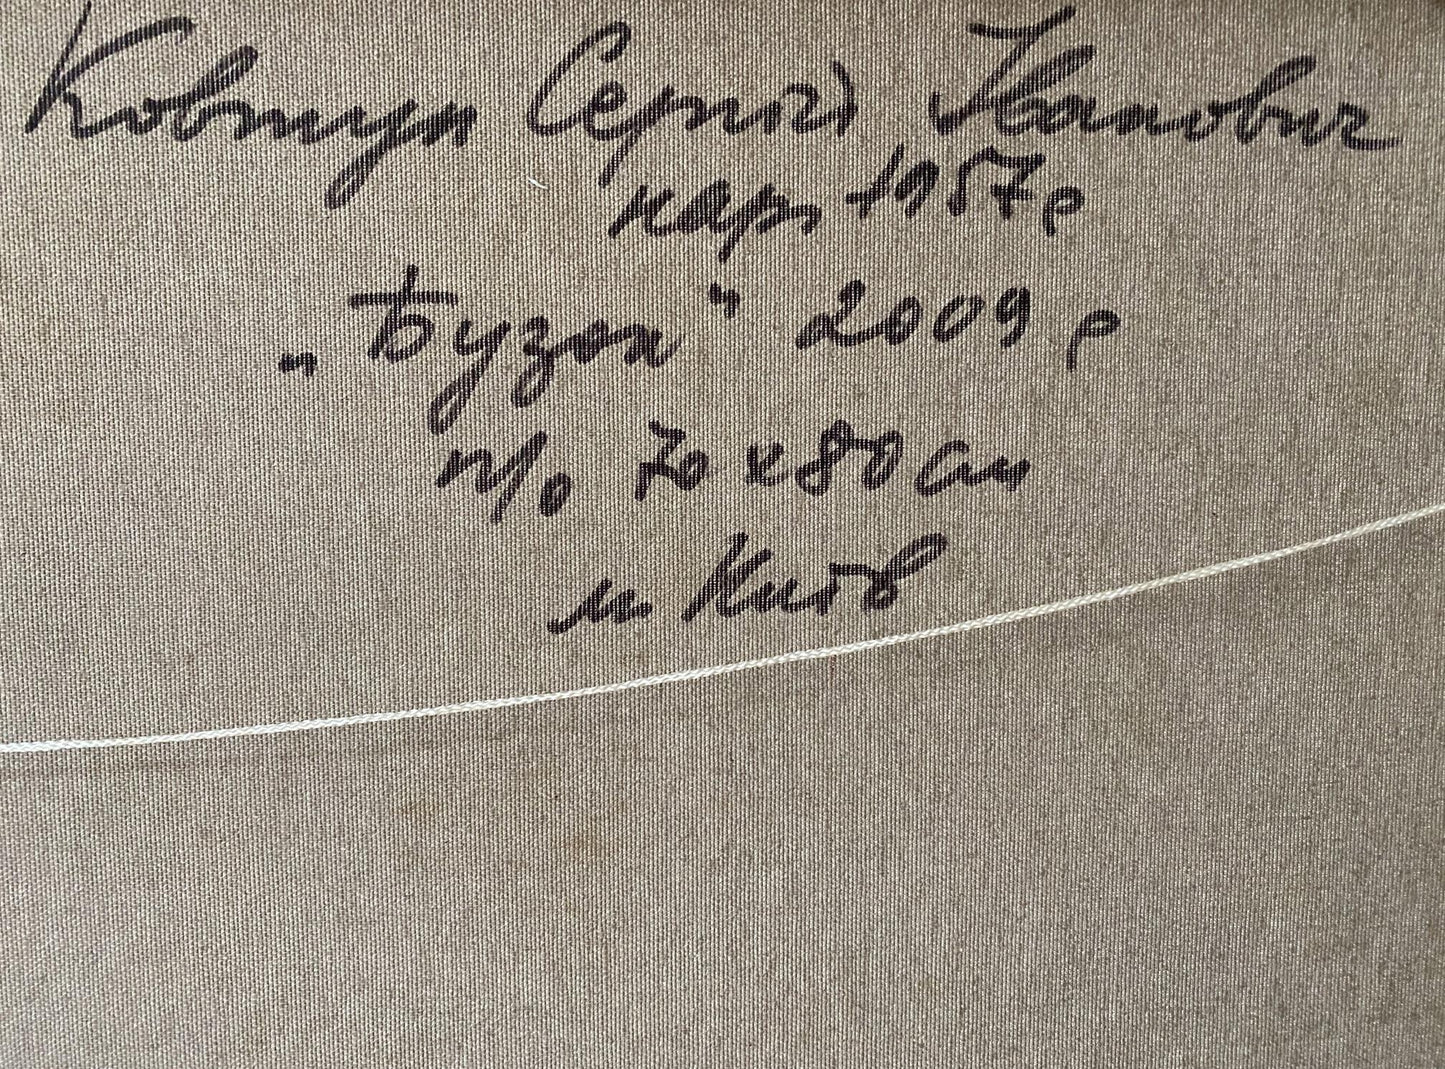 Ковтун Сергій Іванович
нар. 1957 р
„Бузок" 2009 р
п/о 70 х 80 см
м Київ